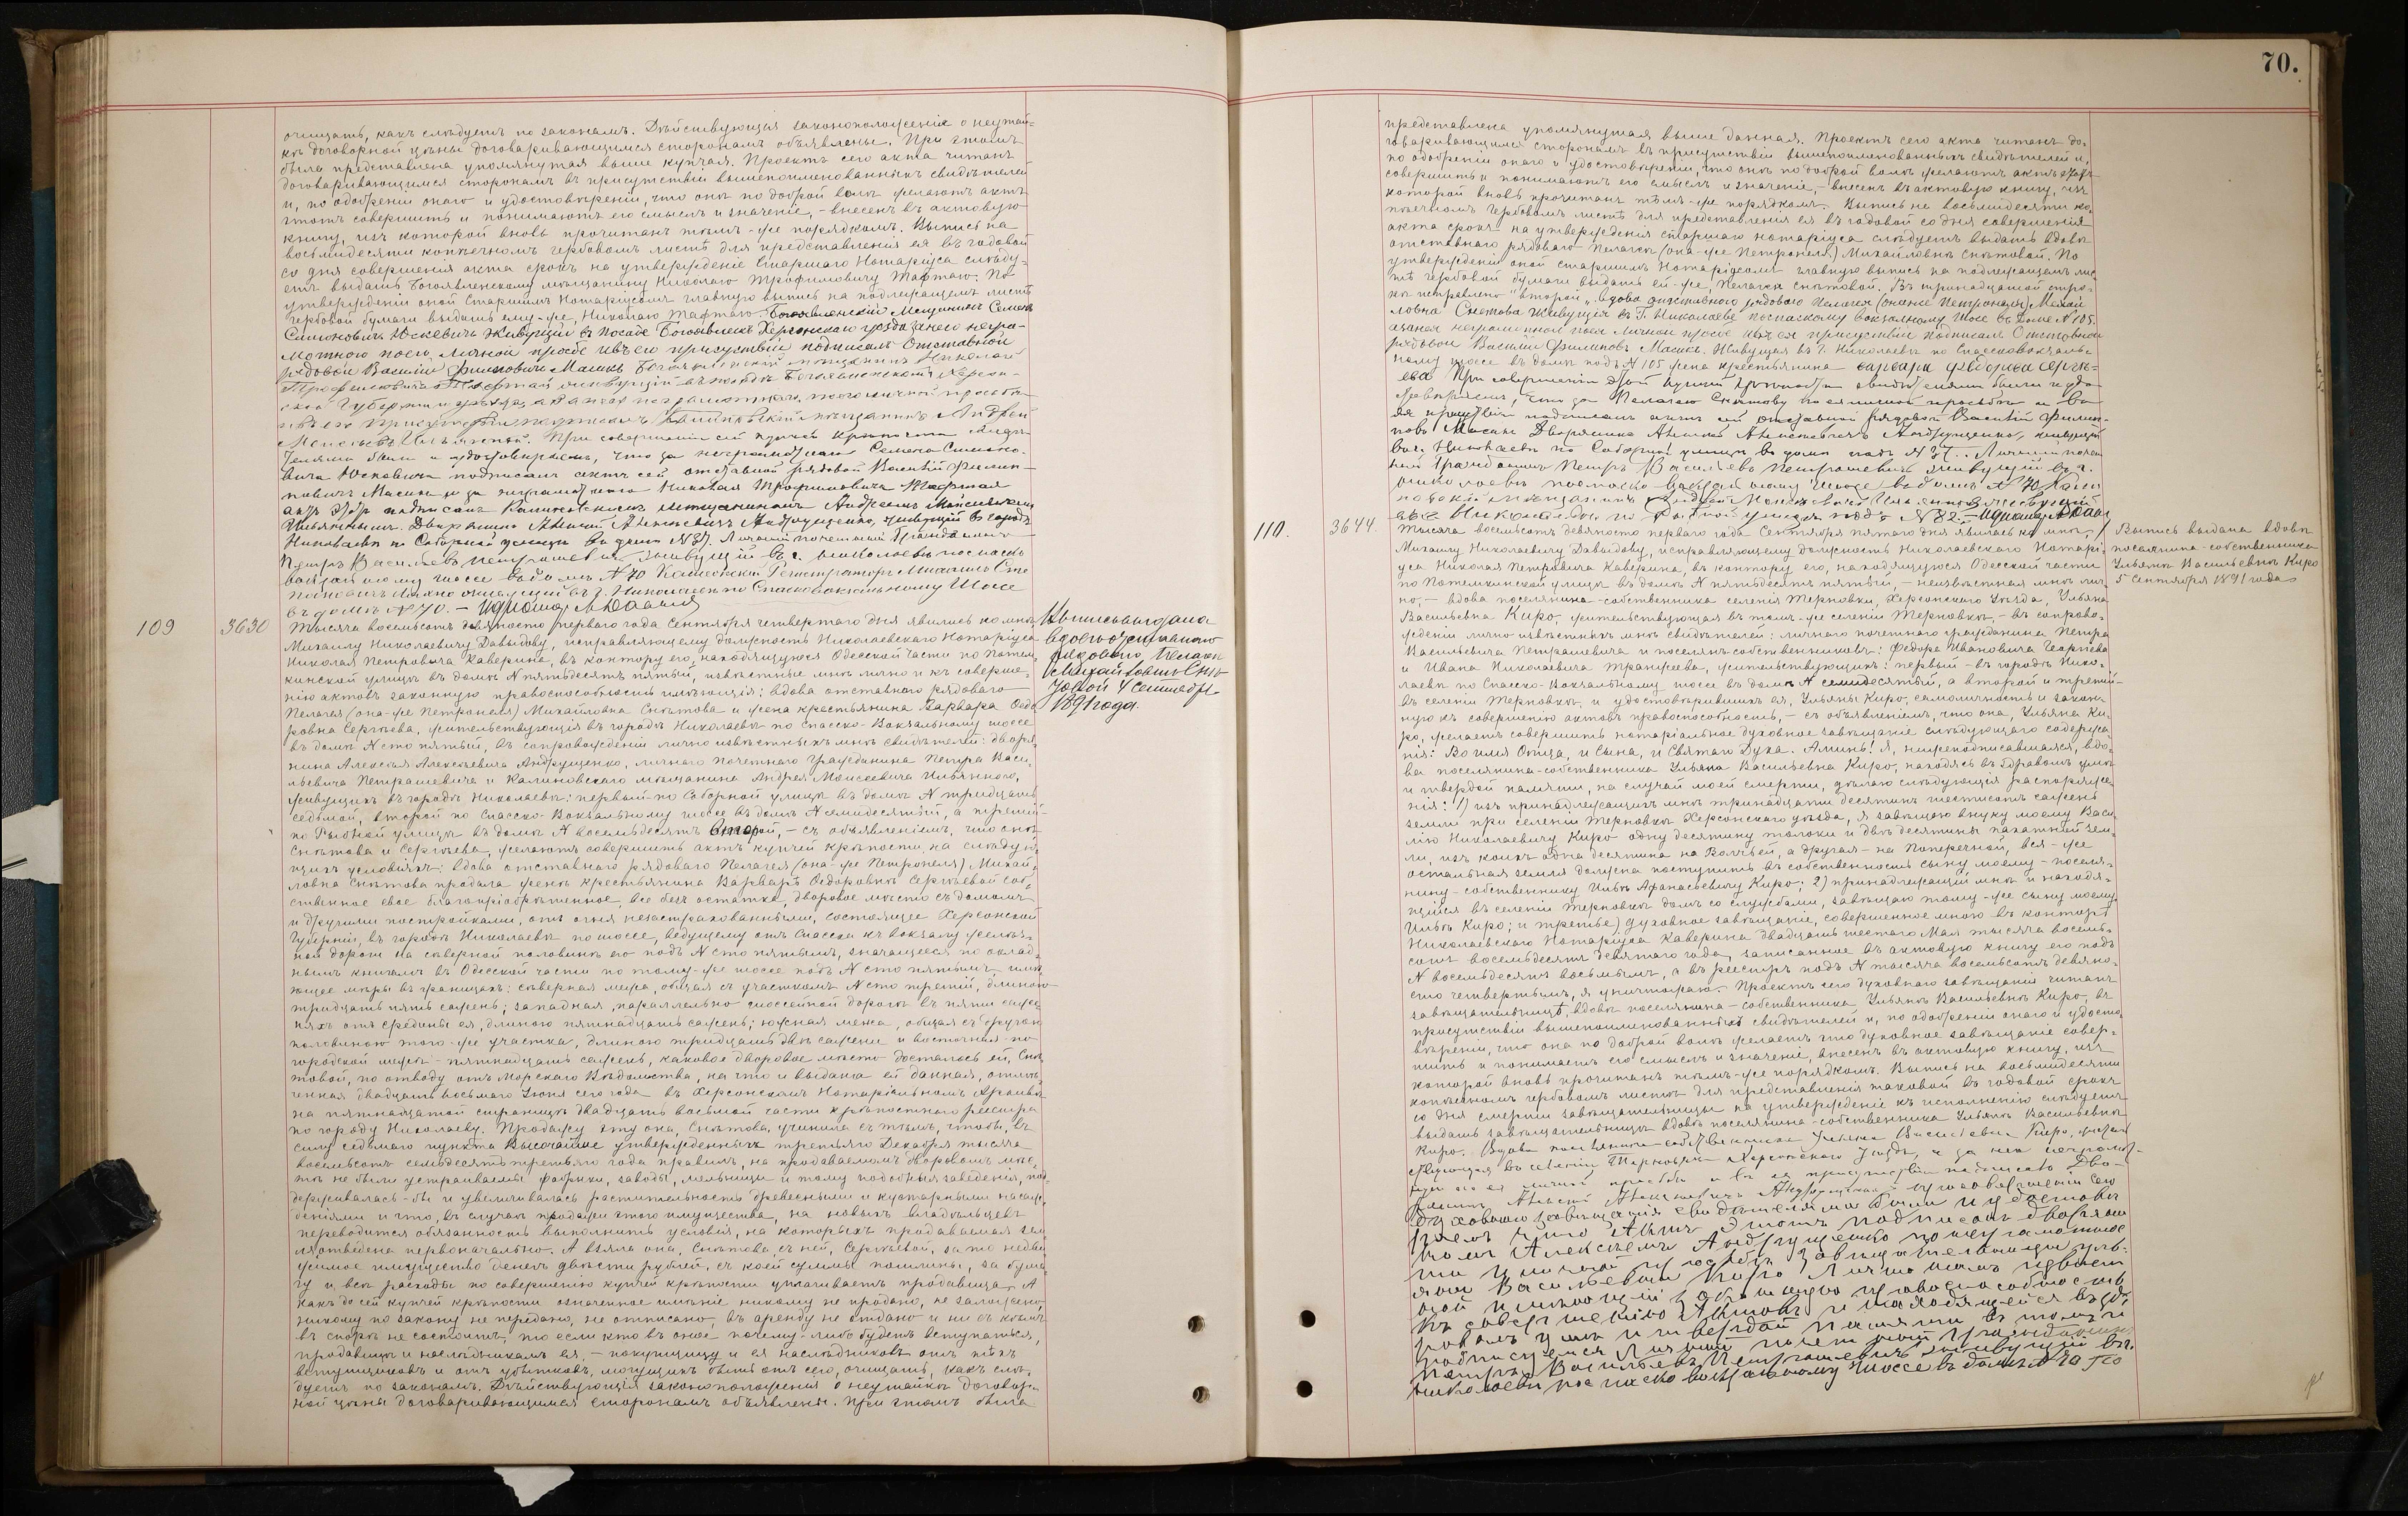 очищать, какъ слѣдуетъ по законамъ. Дѣйствующія законоположенія о неустой-
кѣ договорной цѣны договаривающимся сторонамъ объявлены. При этомъ
была представлена упомянутая выше купчая. Проектъ сего акта читанъ
договаривающимся сторонамъ въ присутствіи вышепоименованныхъ свидѣтелей
и, по одобреніи онаго и удостовѣреніи, что онѣ по доброй волѣ желаютъ актъ
этотъ совершить и понимаютъ его смыслъ и значеніе, - внесенъ въ актовую
книгу, изъ которой вновь прочитанъ тѣмъ-же порядкомъ. Выпись на
восьмидесяти копѣечномъ гербовомъ листѣ для представленія ея въ годовой
со дня совершенія акта срокъ на утвержденіе Старшаго Нотаріуса слѣду-
етъ выдать Богоявленскому мѣщанину Николаю Трофимовичу Тафтаю. По
утвержденіи оной Старшимъ Нотаріусомъ главную выпись на подлежащемъ листѣ
гербовой бумаги выдать ему-же, Николаю Тафтаю. Богоявленскій Мещанинъ Семенъ
Симоновичъ Юскевичъ Живущій въ Посаде Богоявленскъ Херсонскаго уезда а занего негра-
мотного поего личной прозбе ивъего присуствіи подписалъ Отставной
рядовой Василій Филиповичъ Масикъ Богоявленскій мещанинъ Николай
Трофимовичъ Тафтай живущій въ посадѣ Богоявленскомъ Херсон-
ской Губерніи и уѣзда, а за него неграмотнаго, по его личной просьбѣ
и въ его присутствіи подписалъ Калиновскій мѣщанинъ Андрей
Моисеевъ Ильинскій. При совершеніи сей купчей крѣпости свидѣ-
телями были и удостовѣряемъ, что за неграмотнаго Семена Симоно-
вича Юскевича подписалъ актъ сей отставной рядовой Василій Филип-
повичъ Масикъ и за неграмотнаго Николая Трофимовича Тафтая
актъ этотъ подписалъ Калиновскимъ мещаниномъ Андреемъ Моисеевичемъ
Ильинскимъ. Дворянинъ Алексѣй Алексѣевичъ Андрущенко, живущій въ городѣ
Николаевѣ по Соборной улицѣ въ домѣ N 37. Личный почетный Гражданинъ
Петръ Васильевъ Петрашевичъ живущій въ г. Николаевѣ по спаско
вокзальному шоссе въ домѣ N 70 Коллежскій Регистраторъ Михаилъ Сте
пановичъ живущій въ г. Николаевѣ по Спасковокзальному Шоссе
въ домѣ N 70. -
109
3630
Тысяча восемьсотъ девяносто перваго года Сентября четвертаго дня явились ко мнѣ,
Михаилу Николаевичу Давыдову, исправляющему должность Николаевскаго Нотаріуса
Николая Петровича Каверина, въ контору его, находящуюся Одесской части по Потем-
кинской улицѣ въ домѣ N пятьдесятъ пятый, извѣстные мнѣ лично и къ соверше-
нію актовъ законную правоспособность имѣющія: вдова отставнаго рядоваго
Пелагея (она-же Петронеля) Михайловна Снѣтова и жена крестьянина Варвара Ѳедо
ровна Сергѣева, жительствующія въ городѣ Николаевѣ по Спасско-Вокзальному шоссе
въ домѣ N сто пятый, въ сопровожденіи лично извѣстныхъ мнѣ свидѣтелей: дворя-
нина Алексѣя Алексѣевича Андрущенко, личнаго почетнаго гражданина Петра Васи-
льевича Петрашевича и Калиновскаго мѣщанина Андрея Моисеевича Ильинскаго,
живущихъ въ городѣ Николаевѣ: первый-по Соборной улицѣ въ домѣ N тридцать
седьмой, второй по Спасско-Вокзальному шоссе въ домѣ N семидесятый, а третій-
по Рыбной улицѣ въ домѣ N восемьдесятъ второй, - съ объявленіемъ, что онѣ,
Снѣтова и Сергѣева, желаютъ совершить актъ купчей крѣпости на слѣдую-
щихъ условіяхъ: вдова отставнаго рядоваго Пелагея (она-же Петронеля) Михай-
ловна Снѣтова продала женѣ крестьянина Варварѣ Ѳедоровнѣ Сергѣевой соб-
ственное свое благопріобрѣтенное, все безъ остатка, дворовое мѣсто съ домомъ
и другими постройками, отъ огня незастрахованными, состоящее Херсонской
Губерніи, въ городѣ Николаевѣ по шоссе, ведущему отъ Спасска къ вокзалу желѣз-
ной дороги на сѣверной половинѣ его подъ N сто пятымъ, значащееся по оклад-
нымъ книгамъ въ Одесской части по тому-же шоссе подъ N сто пятымъ, имѣ-
ющее мѣры въ границахъ: сѣверная межа, общая съ участкомъ N сто третій, длиною
тридцать пять саженъ; западная, параллельно шоссейной дорогѣ въ пяти саже-
няхъ отъ средины ея, длиною пятнадцать саженъ; южная межа, общая съ другою
половиною того-же участка, длиною тридцать двѣ сажени и восточная-по
городской межѣ-пятнадцать саженъ, каковое дворовое мѣсто досталось ей, Снѣ-
товой, по отводу отъ Морскаго Вѣдомства, на что и выдана ей данная, отмѣ-
ченная двадцать восьмаго Іюня сего года въ Херсонскомъ Нотаріальномъ Архивѣ
на пятнадцатой страницѣ двадцать восьмой части крѣпостнаго реестра
по городу Николаеву. Продажу эту она, Снѣтова, учинила съ тѣмъ, чтобы, въ
силу седьмаго пункта Высочайше утвержденныхъ третьяго Декабря тысяча
восемьсотъ семьдесятъ третьяго года правилъ, на продаваемомъ дворовомъ мѣс-
тѣ не были устраиваемы фабрики, заводы, мельницы и тому подобныя заведенія, под-
держивалась-бы и увеличивалась растительность древесными и кустарными насаж-
деніями и что, въ случаѣ продажи этого имущества, на новыхъ владѣльцевъ
переводится обязанность выполнить условія, на которыхъ продаваемая зем-
ля отведена первоначально. А взяла она, Снѣтова, съ ней, Сергѣевой, за то недви-
жимое имущество денегъ двѣсти рублей, съ коей суммы пошлины, за бума-
гу и всѣ расходы по совершенію купчей крѣпости уплачиваетъ продавица. А
какъ до сей купчей крѣпости означенное имѣніе никому не продано, не заложено,
никому по закону не передано, не отписано, въ аренду не отдано и ни съ кѣмъ
въ спорѣ не состоитъ, то если кто въ оное почему-либо будетъ вступаться,
продавицѣ и наслѣдникамъ ея, - покупщицу и ея наслѣдниковъ отъ тѣхъ
вступщиковъ и отъ убытковъ, могущихъ быть отъ сего, очищать, какъ слѣ-
дуетъ по законамъ. Дѣйствующія законоположенія о неустойкѣ договор-
ной цѣны договаривающимся сторонамъ объявлены. При этомъ была
Выпись выдана
вдовѣ отставнаго
рядоваго Пелагеи
Михайловнѣ Снѣ-
товой 4 Сентября
1891 года.
70.
представлена упомянутая выше данная. Проектъ сего акта читанъ до-
говаривающимся сторонамъ въ присутствіи вышепоименованныхъ свидѣтелей и,
по одобреніи онаго и удостовѣреніи, что онѣ по доброй волѣ желаютъ актъ этотъ
совершить и понимаютъ его смыслъ и значеніе, - внесенъ въ актовую книгу, изъ
которой вновь прочитанъ тѣмъ-же порядкомъ. Выпись на восьмидесяти ко-
пѣечномъ гербовомъ листѣ для представленія ея въ годовой со дня совершенія
акта срокъ на утвержденія старшаго нотаріуса слѣдуетъ выдать вдовѣ
отставнаго рядоваго Пелагеи (она-же Петронеля) Михайловнѣ Снѣтовой. По
утвержденіи оной старшимъ Нотаріусомъ главную выпись на подлежащемъ лис
тѣ гербовой бумаги выдать ей-же, Пелагеи Снѣтовой. Въ тринадцатой стро-
кѣ исправлено "второй". Вдова отставного рядового Пелагея (онаже Петронеля) Михай
ловна Снетова Живущія въ Г. Николаеве поспаскому вокзальному Шосе въ Доме N 105.
азанея неграмотной поея личной прозбе ивъ ея присуствіи подписалъ Отставной
рядовой Василій Филиповъ Масикъ. Живущая въ Г. Николаевѣ по Спасковокзаль-
ному шоссе въ домѣ подъ N 105 жена крестьянина варвара федорова серге-
ева При совершеніи этой купчей крѣпости свидѣтелями были и удо-
стовѣряемъ, что за Пелагею Снѣтову по ея личной просьбѣ и въ
ея присутствіи подписалъ актъ сей отставной рядовой Василій Филип-
повъ Масикъ Дворянинъ Алексѣй Алексѣевичъ Андрущенко, живущій
въ г. Николаевѣ по Соборной улицѣ въ домѣ подъ N 37. Личный почет
ный Гражданинъ Петръ Васильевъ Петрашевичъ живущій въ г.
Николаевѣ поспаско вокзальному шоссе въ домѣ N 70 Кали
новскій мѣщанинъ Андрей Моисеевъ Ильинскій живущій
въ г. Николаевѣ по Рыбной улицѣ подъ N 82. -
110.
3644
Тысяча восемьсотъ девяносто перваго года Сентября пятаго дня явилась ко мнѣ,
Михаилу Николаевичу Давыдову, исправляющему должность Николаевскаго Нотарі-
уса Николая Петровича Каверина, въ контору его, находящуюся Одесской части
по Потемкинской улицѣ въ домѣ N пятьдесятъ пятый, - неизвѣстная мнѣ лич-
но, - вдова поселянина-собственника селенія Терновки, Херсонскаго Уѣзда, Ульяна
Васильевна Киро, жительствующая въ томъ-же селеніи Терновкѣ, - въ сопрово-
жденіи лично извѣстныхъ мнѣ свидѣтелей: личнаго почетнаго гражданина Петра
Васильевича Петрашевича и поселянъ-собственниковъ: Ѳедора Ивановича Георгіева
и Ивана Николаевича Транжеева, жительствующихъ: первый-въ городѣ Нико-
лаевѣ по Спасско-Вокзальному шоссе въ домѣ N семидесятый, а второй и третій-
въ селеніи Терновкѣ, и удостовѣрившихъ ея, Ульяны Киро, самоличность и закон-
ную къ совершенію актовъ правоспособность, - съ объявленіемъ, что она, Ульяна Ки-
ро, желаетъ совершить нотаріальное духовное завѣщаніе слѣдующаго содержа-
нія: Во имя Отца, и Сына, и Святаго Духа. Аминь! Я, нижеподписавшаяся, вдо-
ва поселянина-собственника Ульяна Васильевна Киро, находясь въ здравомъ умѣ
и твердой памяти, на случай моей смерти, дѣлаю слѣдующія распоряже-
нія: 1) изъ принадлежащихъ мнѣ тринадцати десятинъ шестисотъ саженъ
земли при селеніи Терновкѣ Херсонскаго уѣзда, я завѣщаю внуку моему Васи-
лію Николаевичу Киро одну десятину толоки и двѣ десятины пахатней зем-
ли, изъ коихъ одна десятина на Волчьей, а другая-на Поперечной, вся-же
остальная земля должна поступить въ собственность сыну моему-поселя-
нину-собственнику Ильѣ Афанасьевичу Киро; 2) принадлежащій мнѣ и находя-
щійся въ селеніи Терновкѣ домъ со службами, завѣщаю тому-же сыну моему
Ильѣ Киро; и третье) духовное завѣщаніе, совершенное мною въ конторѣ
Николаевскаго Нотаріуса Каверина двадцать шестаго Мая тысяча восемь-
сотъ восемьдесятъ девятаго года, записанное въ актовую книгу его подъ
N восемьдесятъ восьмымъ, а въ реестръ подъ N тысяча восемьсотъ девяно-
сто четвертымъ, я уничтожаю. Проектъ сего духовнаго завѣщанія читанъ
завѣщательницѣ, вдовѣ поселянина-собственника Ульянѣ Васильевнѣ Киро, въ
присутствіи вышепоименованныхъ свидѣтелей и, по одобреніи онаго и удосто-
вѣреніи, что она по доброй волѣ желаетъ это духовное завѣщаніе совер-
шить и понимаетъ его смыслъ и значеніе, внесенъ въ актовую книгу, изъ
которой вновь прочитанъ тѣмъ-же порядкомъ. Выпись на восьмидесяти
копѣечномъ гербовомъ листѣ для представленія таковой въ годовой срокъ
со дня смерти завѣщательницы на утвержденіе къ исполненію слѣдуетъ
выдать завѣщательницѣ вдовѣ поселянина-собственника Ульянѣ Васильевнѣ
Киро. Вдова поселянина-собственника Ульяна Васильевна Киро, житель-
ствующая въ селеніи Терновкѣ Херсонскаго Уѣзда, а за нея неграмот-
ную по ея личной просьбѣ и въ ея присутствіи подписалъ Дво-
рянинъ Алексѣй Алексѣевичъ Андрущенко. При совершеніи сего
духовнаго завѣщанія свидѣтелями были и удостовѣ
ряемъ что Актъ этотъ подписанъ дворяни
номъ Алексѣемъ Андрущенко по неграмотнос
ти и личной просьбѣ завѣщательницы Уль-
яны Васильевны Киро Лично намъ извѣст
ной и имѣющей законную правоспособность
къ совершенію Актовъ и находящейся въ здо
ровомъ умѣ и твердой памяти въ томъ и
подписуемся Личный почетный гражданинъ
Петръ Васильевъ Петрашевичъ живущій въ г.
Николаевѣ поспаско вокзальному шоссе въ домѣ N 70 По
Выпись выдана вдовѣ
поселянина-собственника
Ульянѣ Васильевнѣ Киро
5 Сентября 1891 года